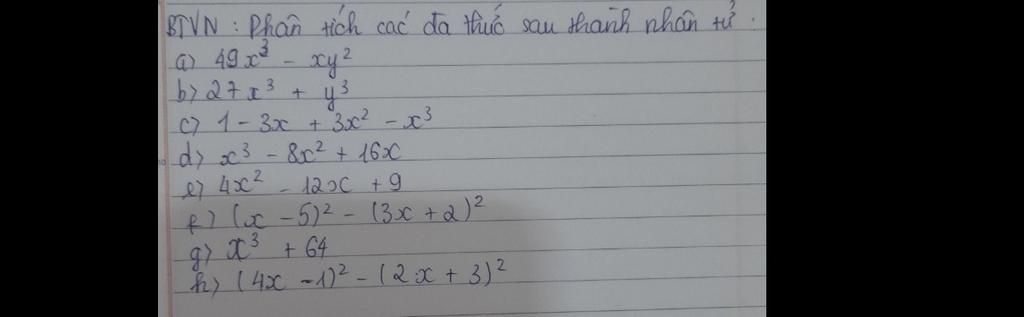 BTVN : Phân tích các đa thức sau thành nhân tử :
a) 49x³ - xy²
b) 27x³ + y³
c) 1 - 3x + 3x² - x³
d) x³ - 8x² + 16x
e) 4x² - 12x + 9
f) (x - 5)² - (3x + 2)²
g) x³ + 64
h) (4x - 1)² - (2x + 3)²